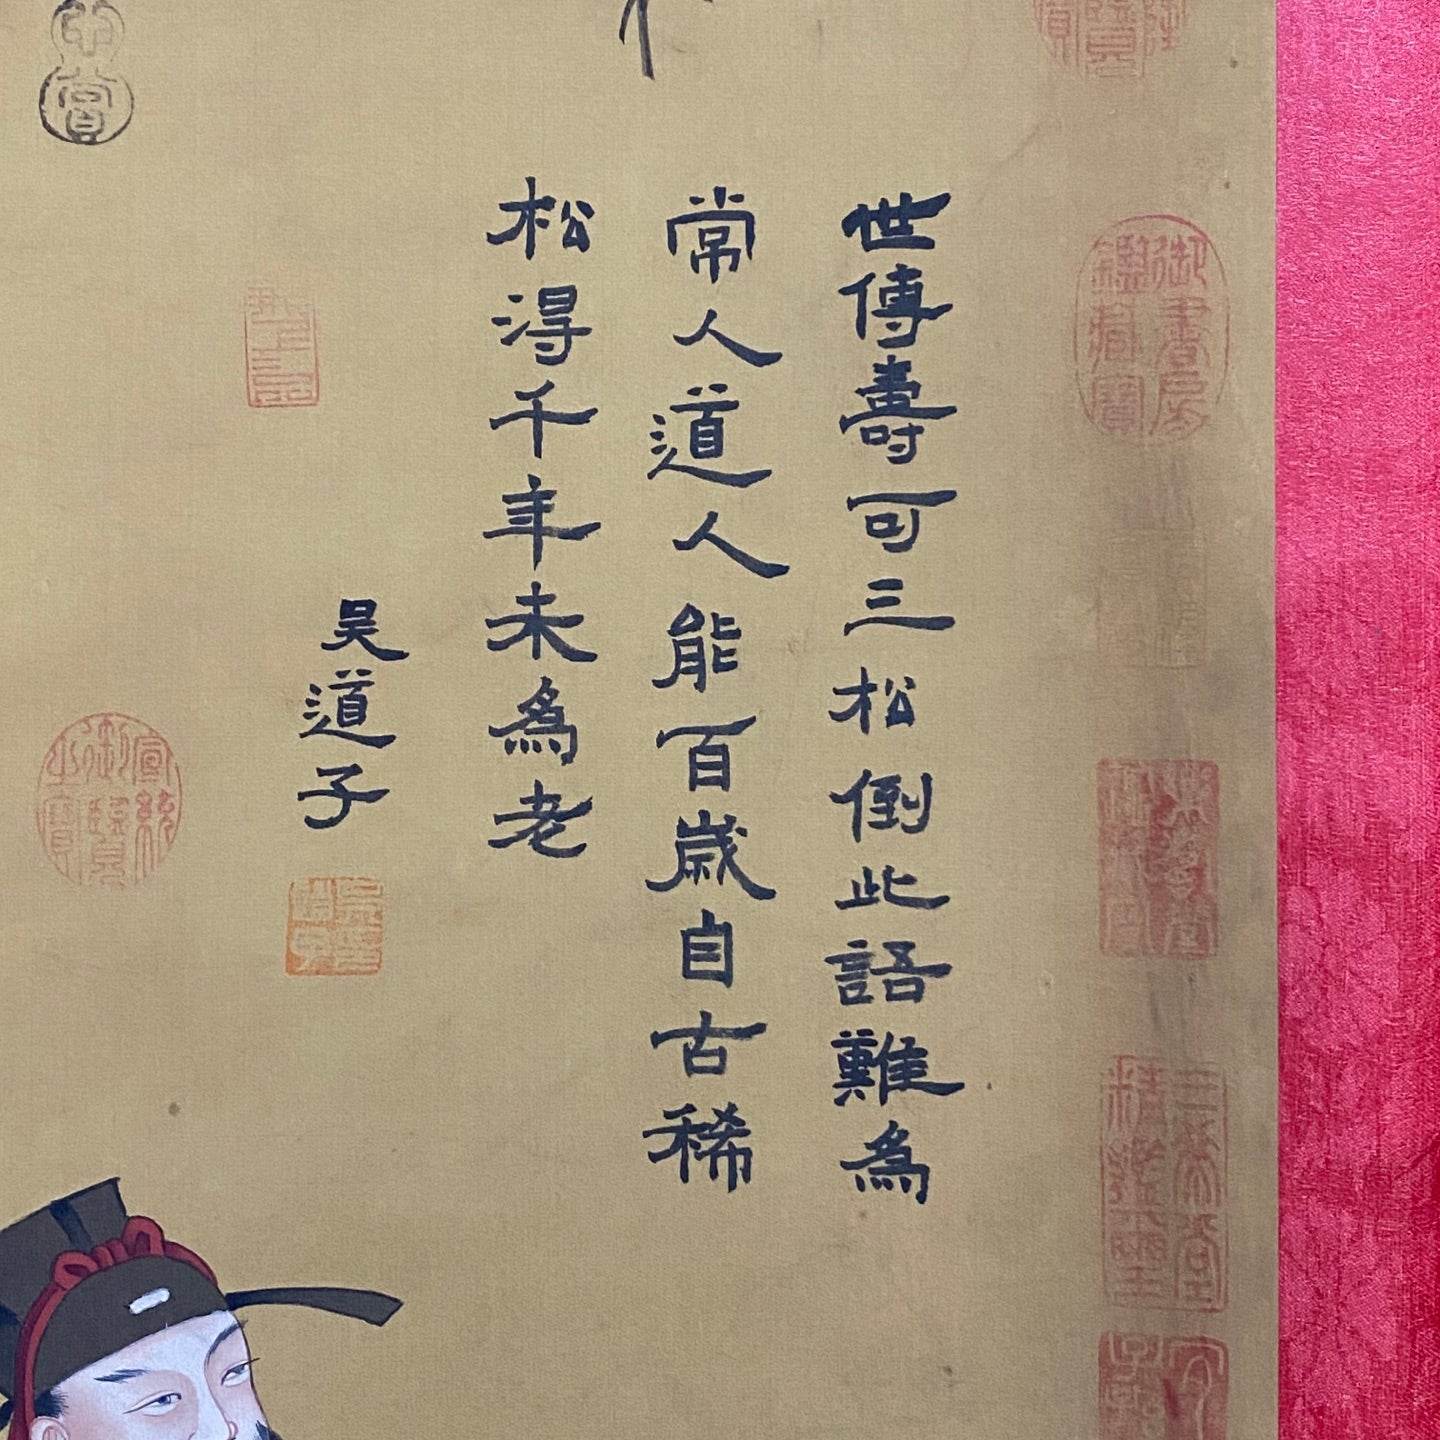 世傳壽可三松倒此語難為
常人道人能百歲自古稀
松得千年未為老
吳道子
御書房鑑藏寶
宣統御覽之寶
三希堂精鑑璽